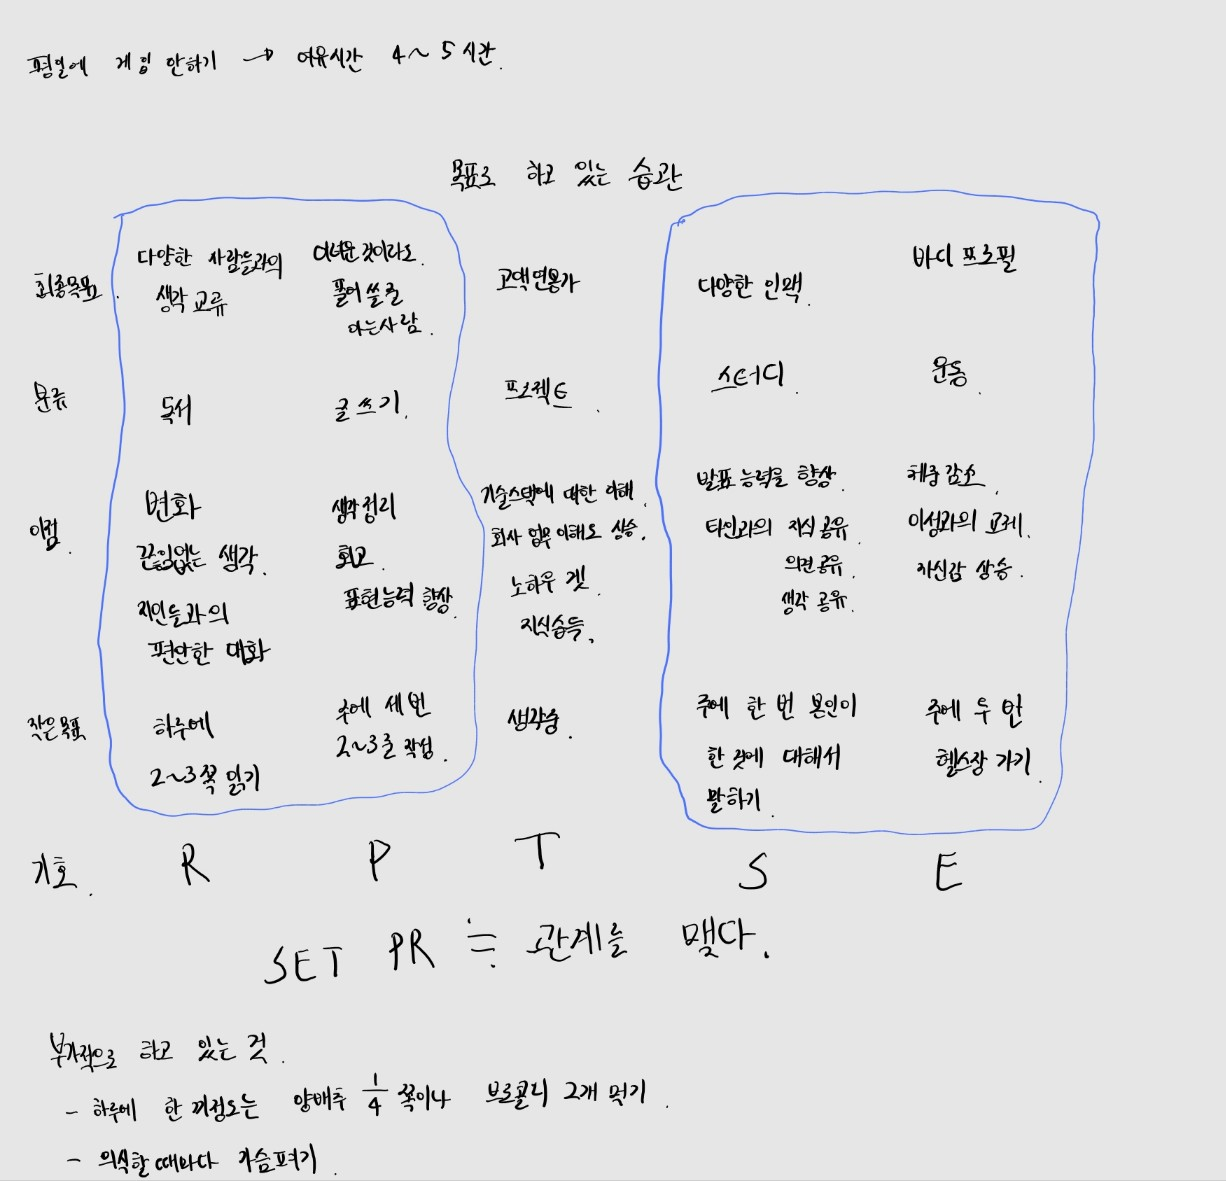 평일에 게임 안하기 → 여유시간 4~5시간.
목표로 하고 있는 습관
최종목표.
다양한 사람들과의
생각 교류
어려운 것이라도.
풀어 쓸 줄
아는사람.
고액연봉자
다양한 인맥.
바디 프로필
분류
독서
글쓰기.
프로젝트.
스터디.
운동.
이점.
변화
끊임없는 생각.
지인들과의
편안한 대화
생각정리
회고.
표현능력 향상.
기술스택에 대한 이해.
회사 업무 이해도 상승.
노하우 겟.
지식습득.
발표 능력을 향상.
타인과의 지식 공유.
의견 공유.
생각 공유.
체중 감소.
이성과의 교제.
자신감 상승.
작은 목표
하루에
2~3쪽 읽기
주에 세 번
2~3줄 작성.
생각중.
주에 한 번 본인이
한 것에 대해서
말하기.
주에 두 번
헬스장 가기.
기호.
R P T S E
SET PR ≒ 관계를 맺다.
부가적으로 하고 있는 것.
- 하루에 한 끼정도는 양배추 1/4 쪽이나 브로콜리 2개 먹기.
- 의식할 때마다 가슴펴기.